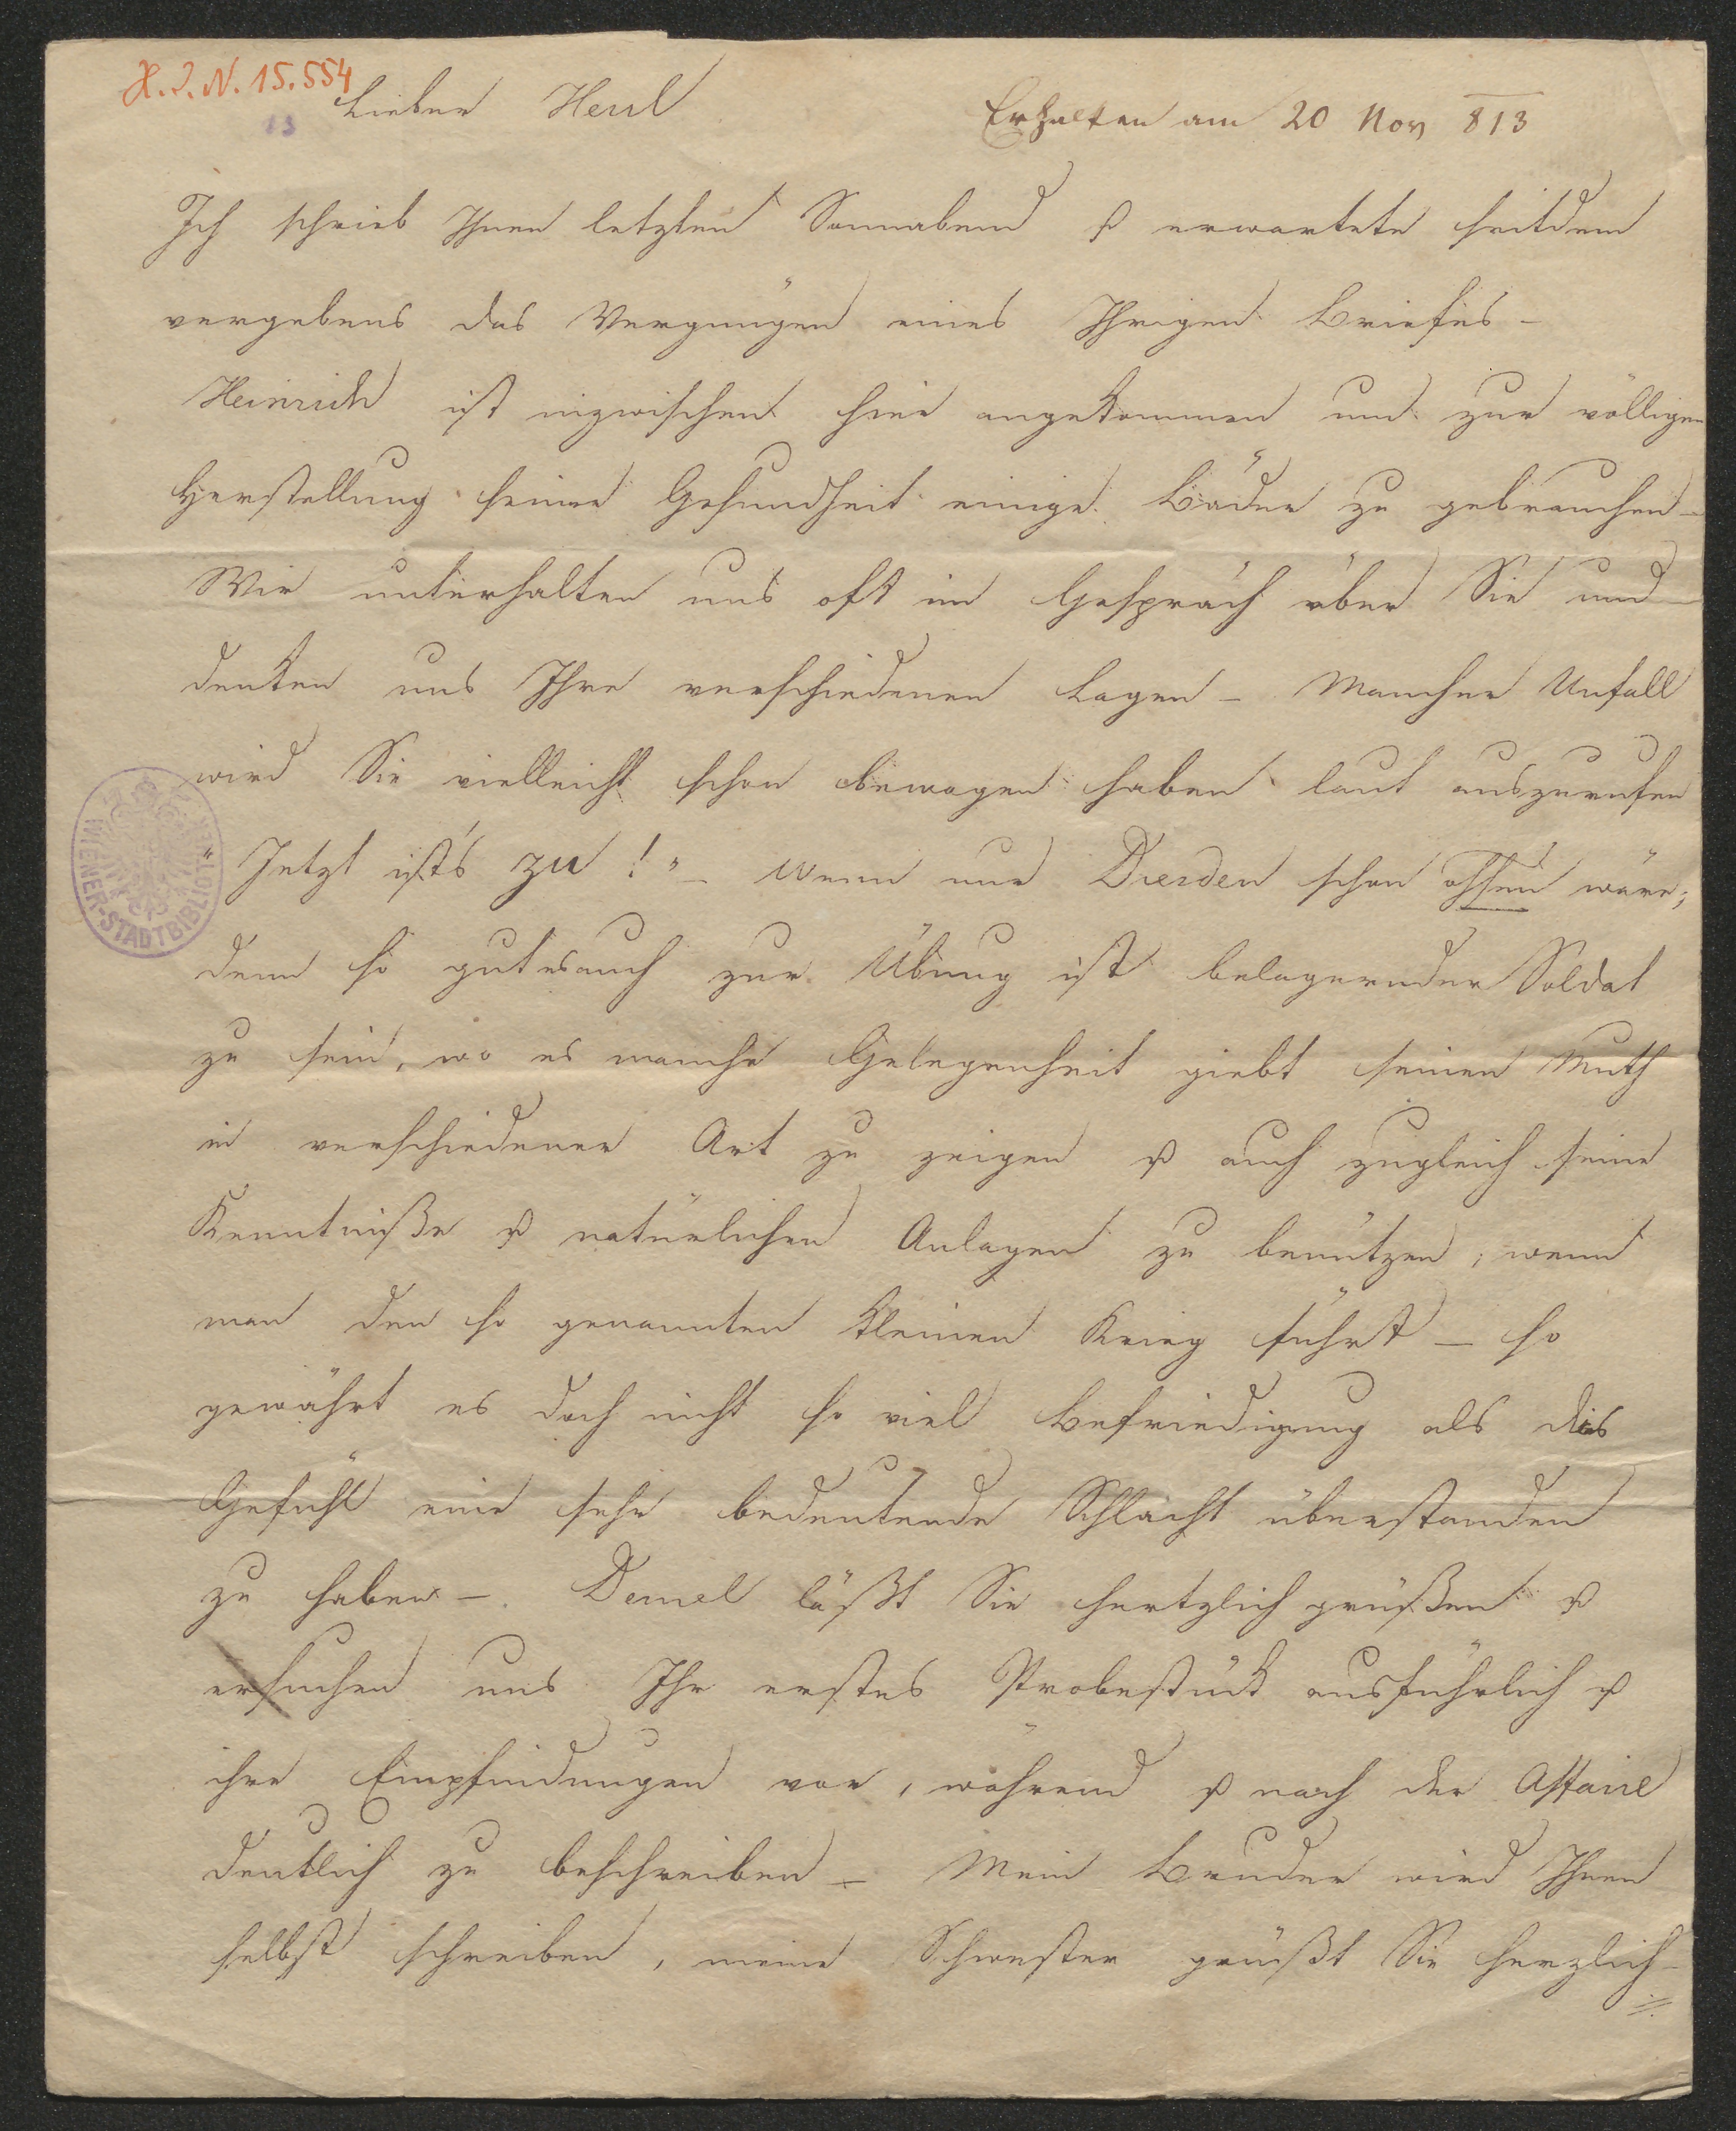 H.I.N. 15.554
13
Lieber Herrl
Erhalten am 20 Nov 813
Ich schrieb Ihnen letzten Sonnabend & erwartete seitdem
vergebens das Vergnügen eines Ihrigen Briefes –
Heinrich ist inzwischen hier angekommen um zur völligen
Herstellung seiner Gesundheit einige Bäder zu gebrauchen –
Wir unterhalten uns oft im Gespräch über Sie und
denken uns Ihre verschiedenen Lagen – Mancher Unfall
wird Sie vielleicht schon bewogen haben laut auszurufen
"Jetzt ist's zu!" – Wenn nur Dresden schon offen wäre;
denn so gut es auch zur Übung ist belagernder Soldat
zu sein, wo es manche Gelegenheit giebt seinen Muth
in verschiedener Art zu zeigen & auch zugleich seine
Kenntniße & natürlichen Anlagen zu benützen, wenn
man den so genannten kleinen Krieg führt – so
gewährt es doch nicht so viel Befriedigung als das
Gefühl eine sehr bedeutende Schlacht überstanden
zu haben –. Demel läßt Sie hertzlich grüßen &
ersuchen uns Ihr erstes Probestück ausführlich &
ihre Empfindungen vor, während & nach der Affaire
deutlich zu beschreiben – Mein Bruder wird Ihnen
selbst schreiben, meine Schwester grüßt Sie herzlich –
WIENER-STADTBIBLIOT